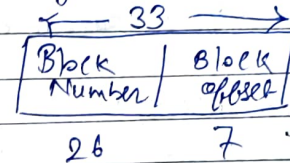 33
Block Number Block offset
26 7